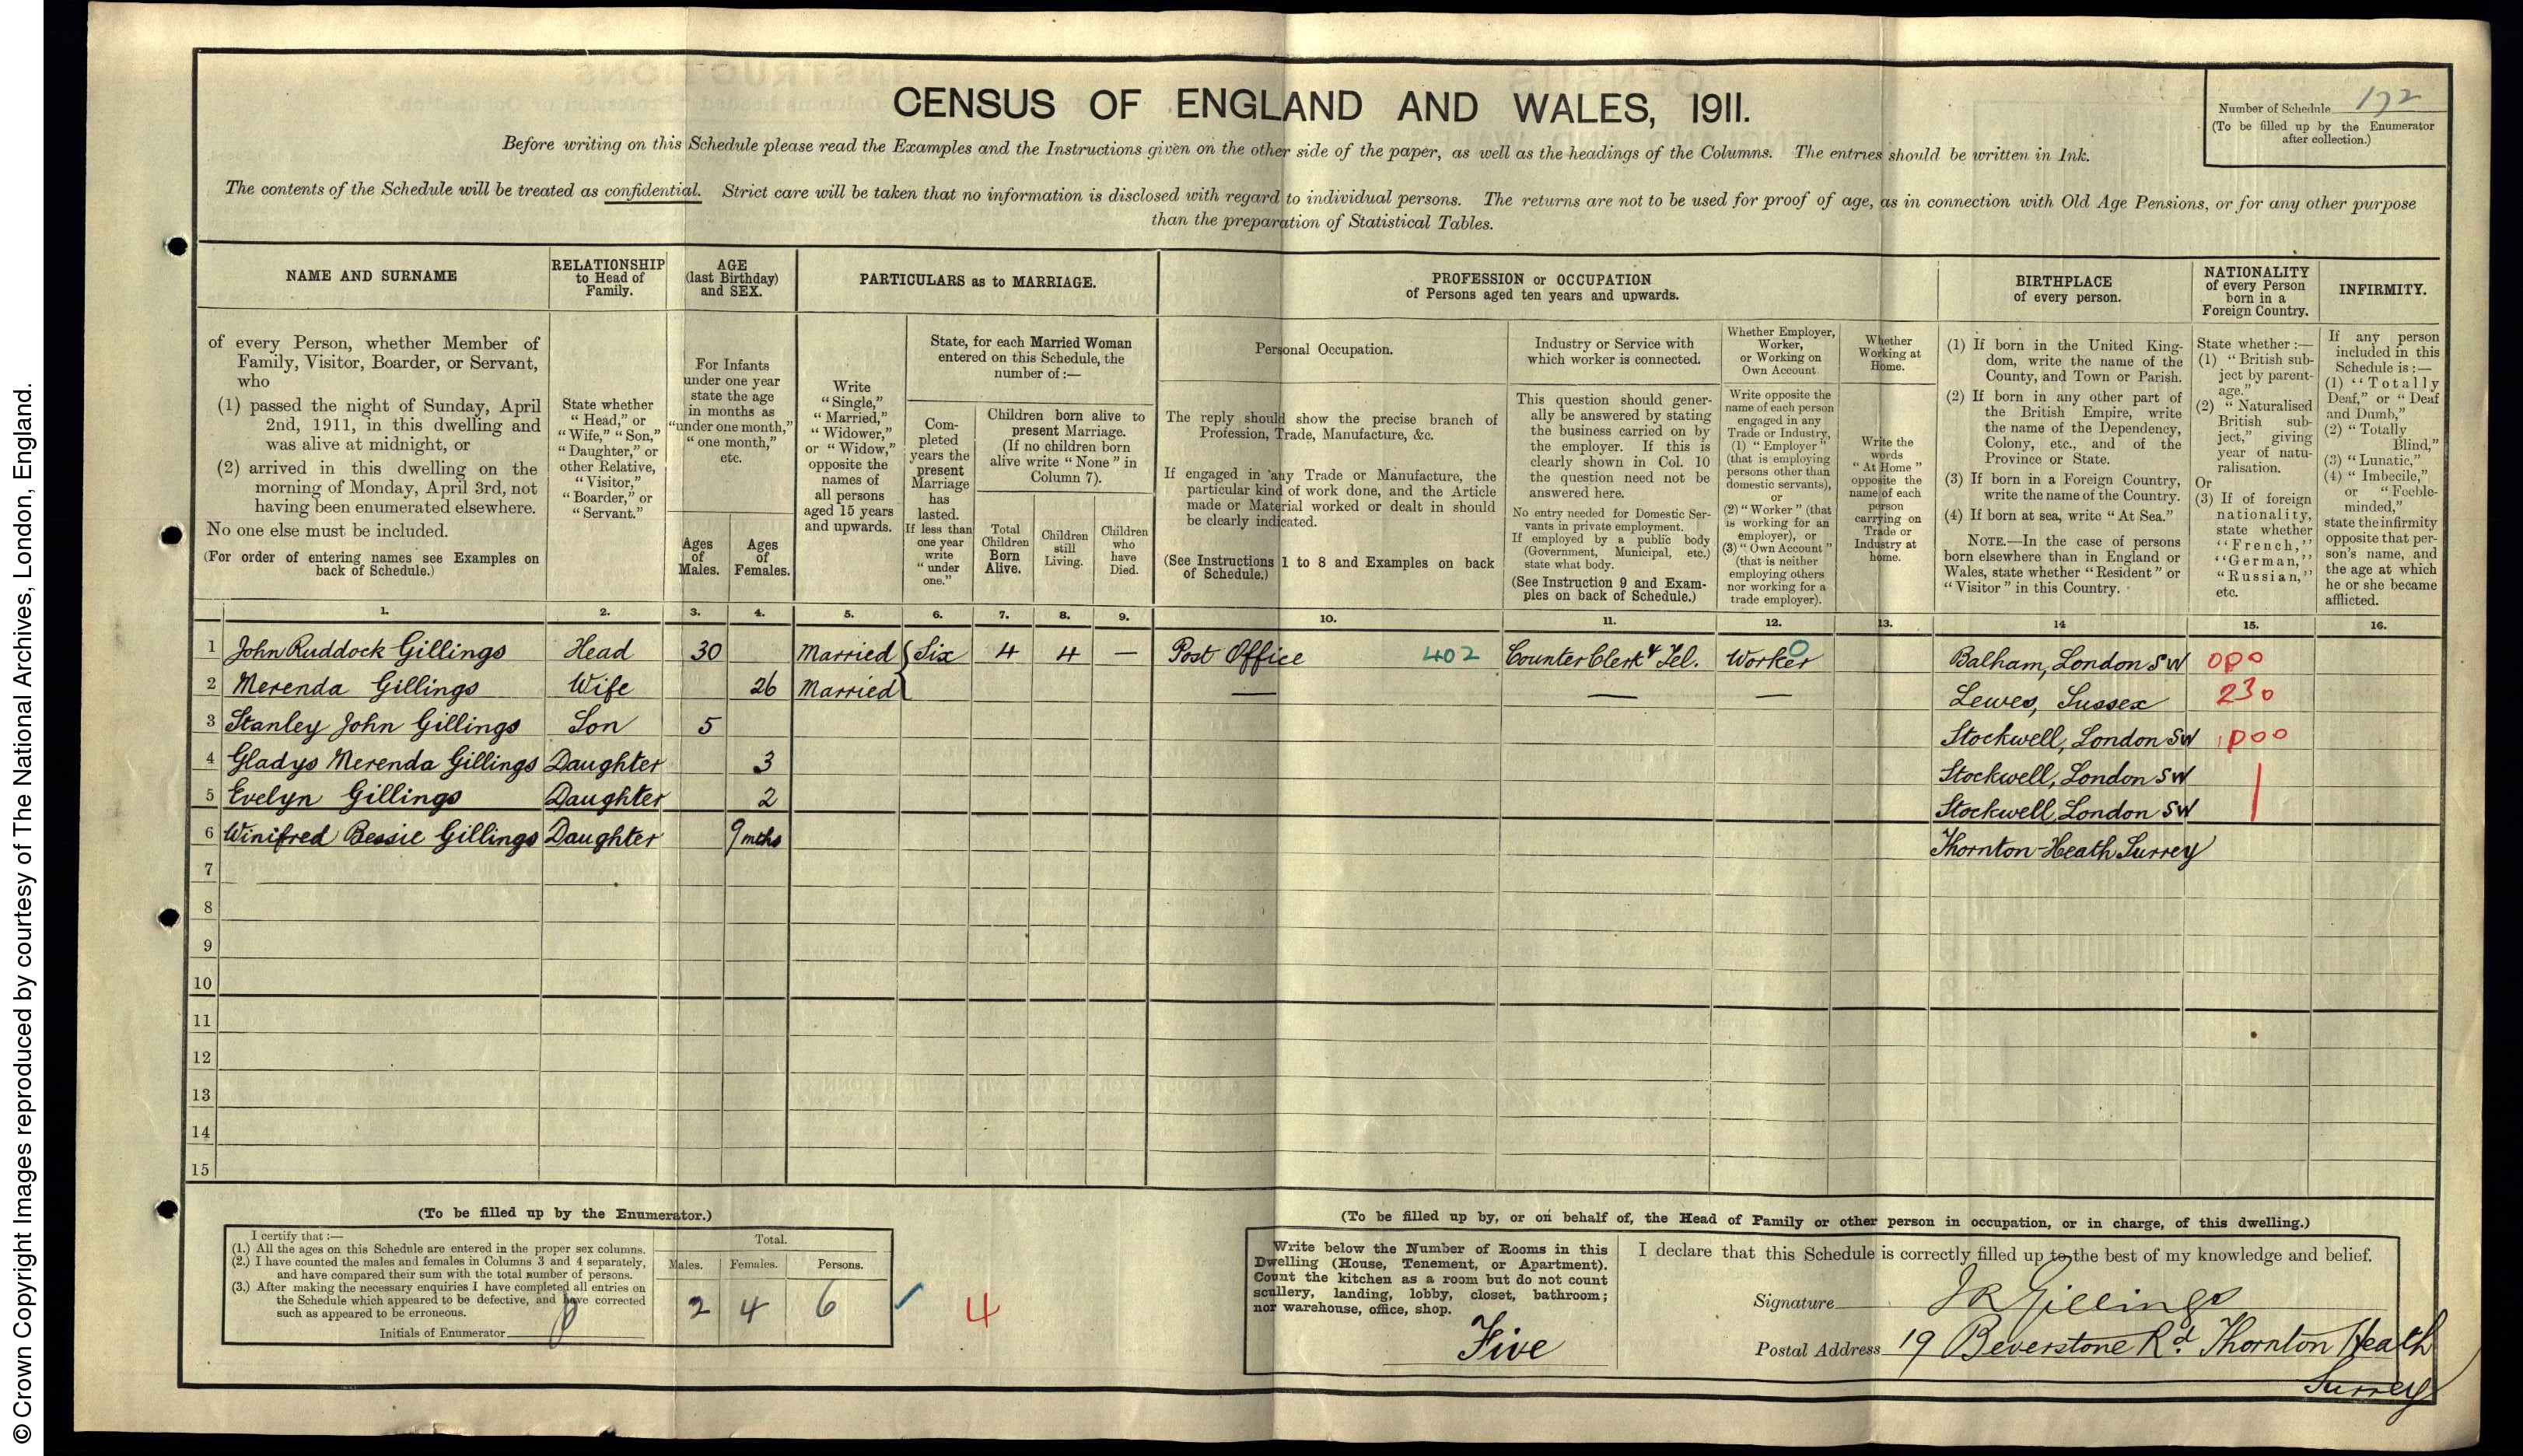 CENSUS OF ENGLAND AND WALES, 1911.
Number of Schedule 172
(To be filled up by the Enumerator
after collection.)
Before writing on this Schedule please read the Examples and the Instructions given on the other side of the paper, as well as the headings of the Columns. The entries should be written in Ink.
The contents of the Schedule will be treated as confidential. Strict care will be taken that no information is disclosed with regard to individual persons. The returns are not to be used for proof of age, as in connection with Old Age Pensions, or for any other purpose
than the preparation of Statistical Tables.
NAME AND SURNAME
of every Person, whether Member of
Family, Visitor, Boarder, or Servant,
who
(1) passed the night of Sunday, April
2nd, 1911, in this dwelling and
was alive at midnight, or
(2) arrived in this dwelling on the
morning of Monday, April 3rd, not
having been enumerated elsewhere.
No one else must be included.
(For order of entering names see Examples on
back of Schedule.)
RELATIONSHIP
to Head of
Family.
State whether
"Head," or
"Wife," "Son,"
"Daughter," or
other Relative,
"Visitor,"
"Boarder," or
"Servant."
AGE
(last Birthday)
and SEX.
For Infants
under one year
state the age
in months as
"under one month,"
"one month,"
etc.
Ages
of
Males.
Ages
of
Females.
PARTICULARS as to MARRIAGE.
Write
"Single,"
"Married,"
"Widower,"
or "Widow,"
opposite the
names of
all persons
aged 15 years
and upwards.
State, for each Married Woman
entered on this Schedule, the
number of :—
Com-
pleted
years the
present
Marriage
has
lasted.
If less than
one year
write
"under
one."
Children born alive to
present Marriage.
(If no children born
alive write "None" in
Column 7).
Total
Children
Born
Alive.
Children
still
Living.
Children
who
have
Died.
PROFESSION or OCCUPATION
of Persons aged ten years and upwards.
Personal Occupation.
The reply should show the precise branch of
Profession, Trade, Manufacture, &c.
If engaged in any Trade or Manufacture, the
particular kind of work done, and the Article
made or Material worked or dealt in should
be clearly indicated.
(See Instructions 1 to 8 and Examples on back
of Schedule.)
Industry or Service with
which worker is connected.
This question should gener-
ally be answered by stating
the business carried on by
the employer. If this is
clearly shown in Col. 10
the question need not be
answered here.
No entry needed for Domestic Ser-
vants in private employment.
If employed by a public body
(Government, Municipal, etc.)
state what body.
(See Instruction 9 and Exam-
ples on back of Schedule.)
Whether Employer,
Worker,
or Working on
Own Account
Write opposite the
name of each person
engaged in any
Trade or Industry,
(1) "Employer"
(that is employing
persons other than
domestic servants),
or
(2) "Worker" (that
is working for an
employer), or
(3) "Own Account"
(that is neither
employing others
nor working for a
trade employer).
Whether
Working at
Home.
Write the
words
"At Home"
opposite the
name of each
person
carrying on
Trade or
Industry at
home.
BIRTHPLACE
of every person.
(1) If born in the United King-
dom, write the name of the
County, and Town or Parish.
(2) If born in any other part of
the British Empire, write
the name of the Dependency,
Colony, etc., and of the
Province or State.
(3) If born in a Foreign Country,
write the name of the Country.
(4) If born at sea, write "At Sea."
NOTE.—In the case of persons
born elsewhere than in England or
Wales, state whether "Resident" or
"Visitor" in this Country.
NATIONALITY
of every Person
born in a
Foreign Country.
State whether :—
(1) "British sub-
ject by parent-
age."
(2) "Naturalised
British sub-
ject," giving
year of natu-
ralisation.
Or
(3) If of foreign
nationality,
state whether
"French,"
"German,"
"Russian,"
etc.
INFIRMITY.
If any person
included in this
Schedule is :—
(1) "Totally
Deaf," or "Deaf
and Dumb,"
(2) "Totally
Blind,"
(3) "Lunatic,"
(4) "Imbecile,"
or "Feeble-
minded,"
state the infirmity
opposite that per-
son's name, and
the age at which
he or she became
afflicted.
1. 2. 3. 4. 5. 6. 7. 8. 9. 10. 11. 12. 13. 14 15. 16.
1 John Ruddock Gillings Head 30 Married Six 4 4 — Post Office 402 Counter Clerk & Tel. Worker 0 Balham, London SW 0P0
2 Merenda Gillings Wife 26 Married — — — Lewes, Sussex 230
3 Stanley John Gillings Son 5 Stockwell, London SW P00
4 Gladys Merenda Gillings Daughter 3 Stockwell, London SW
5 Evelyn Gillings Daughter 2 Stockwell, London SW
6 Winifred Bessie Gillings Daughter 9 mths Thornton-Heath Surrey
7
8
9
10
11
12
13
14
15
(To be filled up by the Enumerator.)
I certify that :—
(1.) All the ages on this Schedule are entered in the proper sex columns.
(2.) I have counted the males and females in Columns 3 and 4 separately,
and have compared their sum with the total number of persons.
(3.) After making the necessary enquiries I have completed all entries on
the Schedule which appeared to be defective, and have corrected
such as appeared to be erroneous.
Initials of Enumerator
Total.
Males. Females. Persons.
2 4 6 ✓ 4
(To be filled up by, or on behalf of, the Head of Family or other person in occupation, or in charge, of this dwelling.)
Write below the Number of Rooms in this
Dwelling (House, Tenement, or Apartment).
Count the kitchen as a room but do not count
scullery, landing, lobby, closet, bathroom;
nor warehouse, office, shop.
Five
I declare that this Schedule is correctly filled up to the best of my knowledge and belief.
Signature JR Gillings
Postal Address 19 Beverstone Rd. Thornton Heath
Surrey
© Crown Copyright Images reproduced by courtesy of The National Archives, London, England.